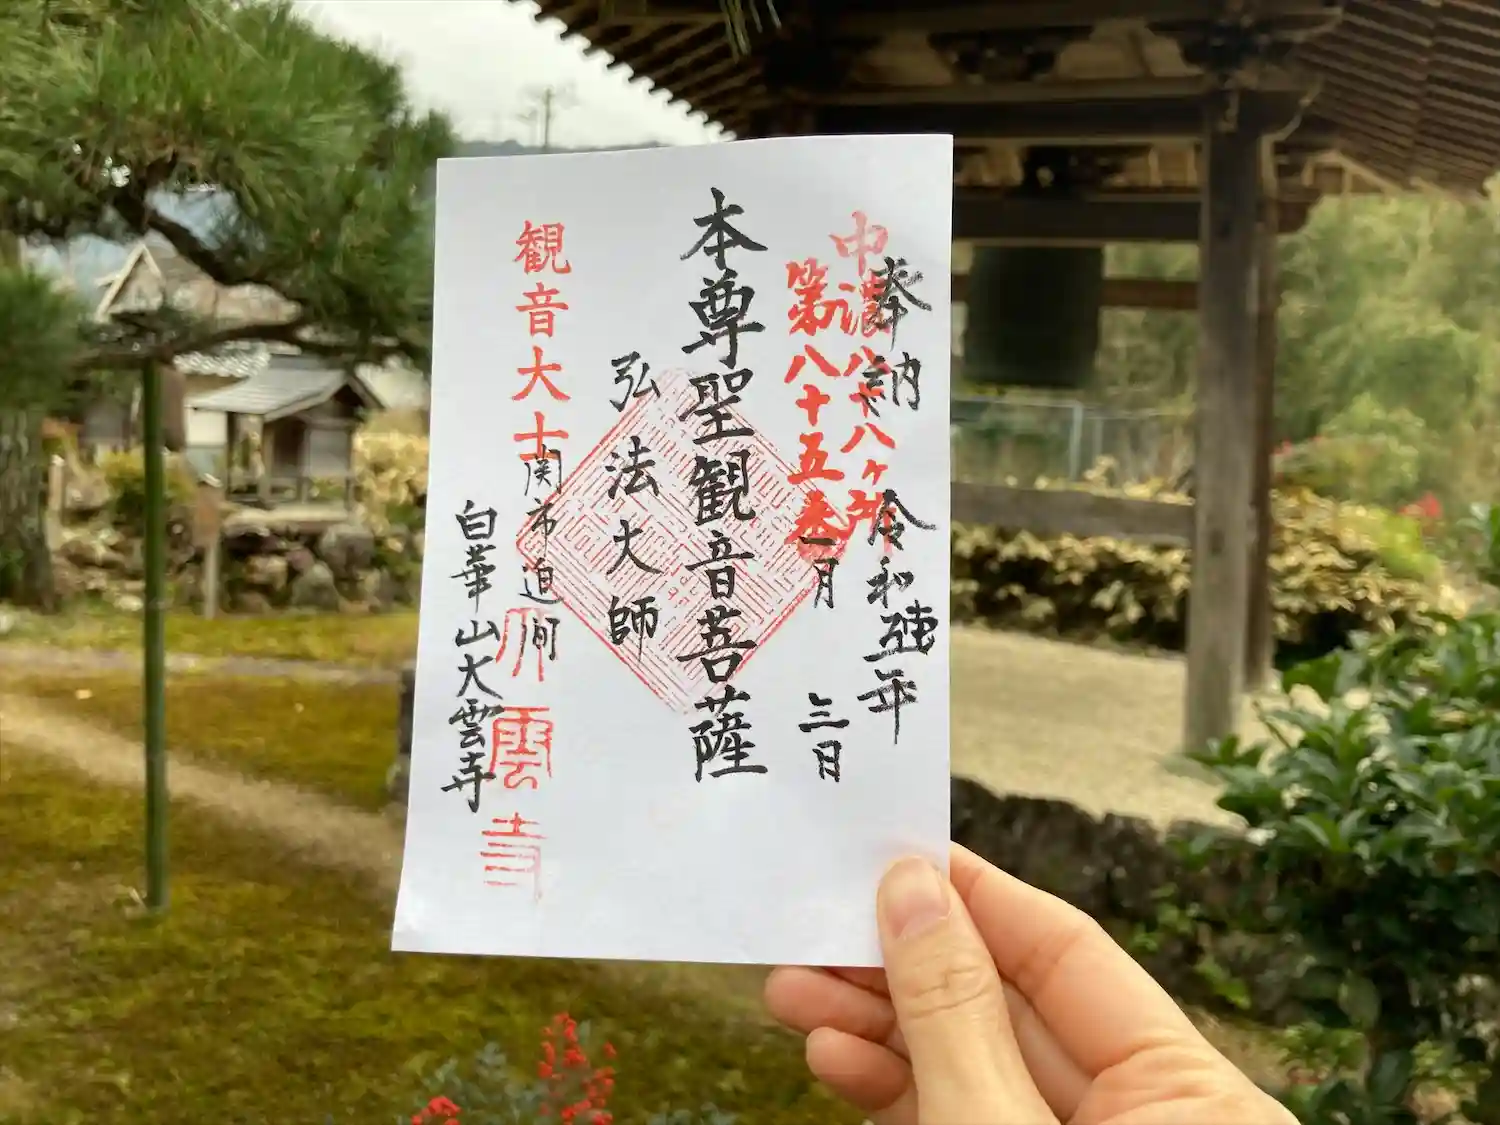 奉納 令和五年
中濃八十八ヶ所
第八十五番
一月 三日
本尊聖観音菩薩
弘法大師
観音大士
関市迫間
大雲寺
白華山大雲寺